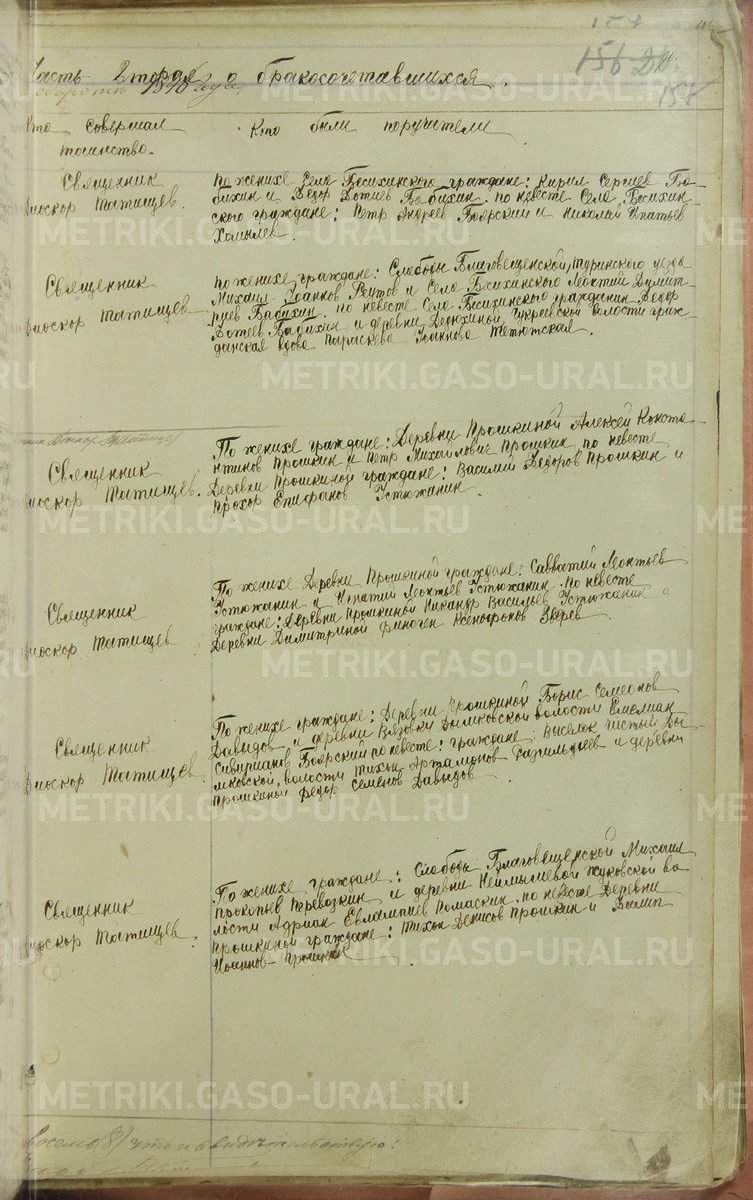 154
156 22
158
Часть Вторая о бракосочетавшихся.
Кто совершал
таинство.
Кто были поручители
Священник
Диоскор Татищев.
По женихе Села Бесихинского граждане: Кирил Сергиев Ба-
бихин и Федор Фотиев Бабихин. по невесте Села Бесихин-
ского граждане: Петр Андреев Боярский и Николай Ипатьев
Хомылев.
Священник
Диоскор Татищев
По женихе граждане: Слободы Благовещенской, Туринского уезда
Михаил Иоаннов Реутов и Села Бесихинского Леонтий Димит-
риев Бабихин. по невесте Села Бесихинского гражданин Федор
Фотеев Бабихин и деревни Дедюхиной, Кукреевской волости граж-
данская вдова Параскева Иоаннова Тетютская.
Священник
Диоскор Татищев.
По женихе граждане: Деревни Прошкиной Алексей Конста-
нтинов Прошкин и Петр Михаилович Прошкин по невесте
Деревни Прошкиной граждане: Василий Федоров Прошкин и
Прохор Епифанов Устюжанин.
Священник
Диоскор Татищев
По женихе Деревни Прошкиной граждане: Савватий Леонтьев
Устюжанин и Игнатий Леонтьев Устюжанин. по невесте
граждане: Деревни Прошкиной Никандр Васильев Устюжанин и
Деревни Димитриной Финоген Ксенофонов Зверев.
Священник
Диоскор Татищев.
По женихе граждане: Деревни Прошкиной Борис Семеонов
Давыдов и деревни Вязовки Дымковской волости Емелиан
Боярский по невесте: граждане: Выселок Чистый Ды-
мковской, волости Тихон Артамонов и деревни
Прошкиной Федор Семенов Давыдов.
Священник
Диоскор Татищев.
По женихе граждане: Слободы Благовещенской Михаил
Прокопьев Перевозкин и деревни Неймышевой Жуковской во-
лости Адриан Евлампиев Помаскин. по невесте Деревни
Прошкиной граждане: Тихон Денисов Прошкин и Филип
Иоаннов Прошкин
METRIKI.GASO-URAL.RU